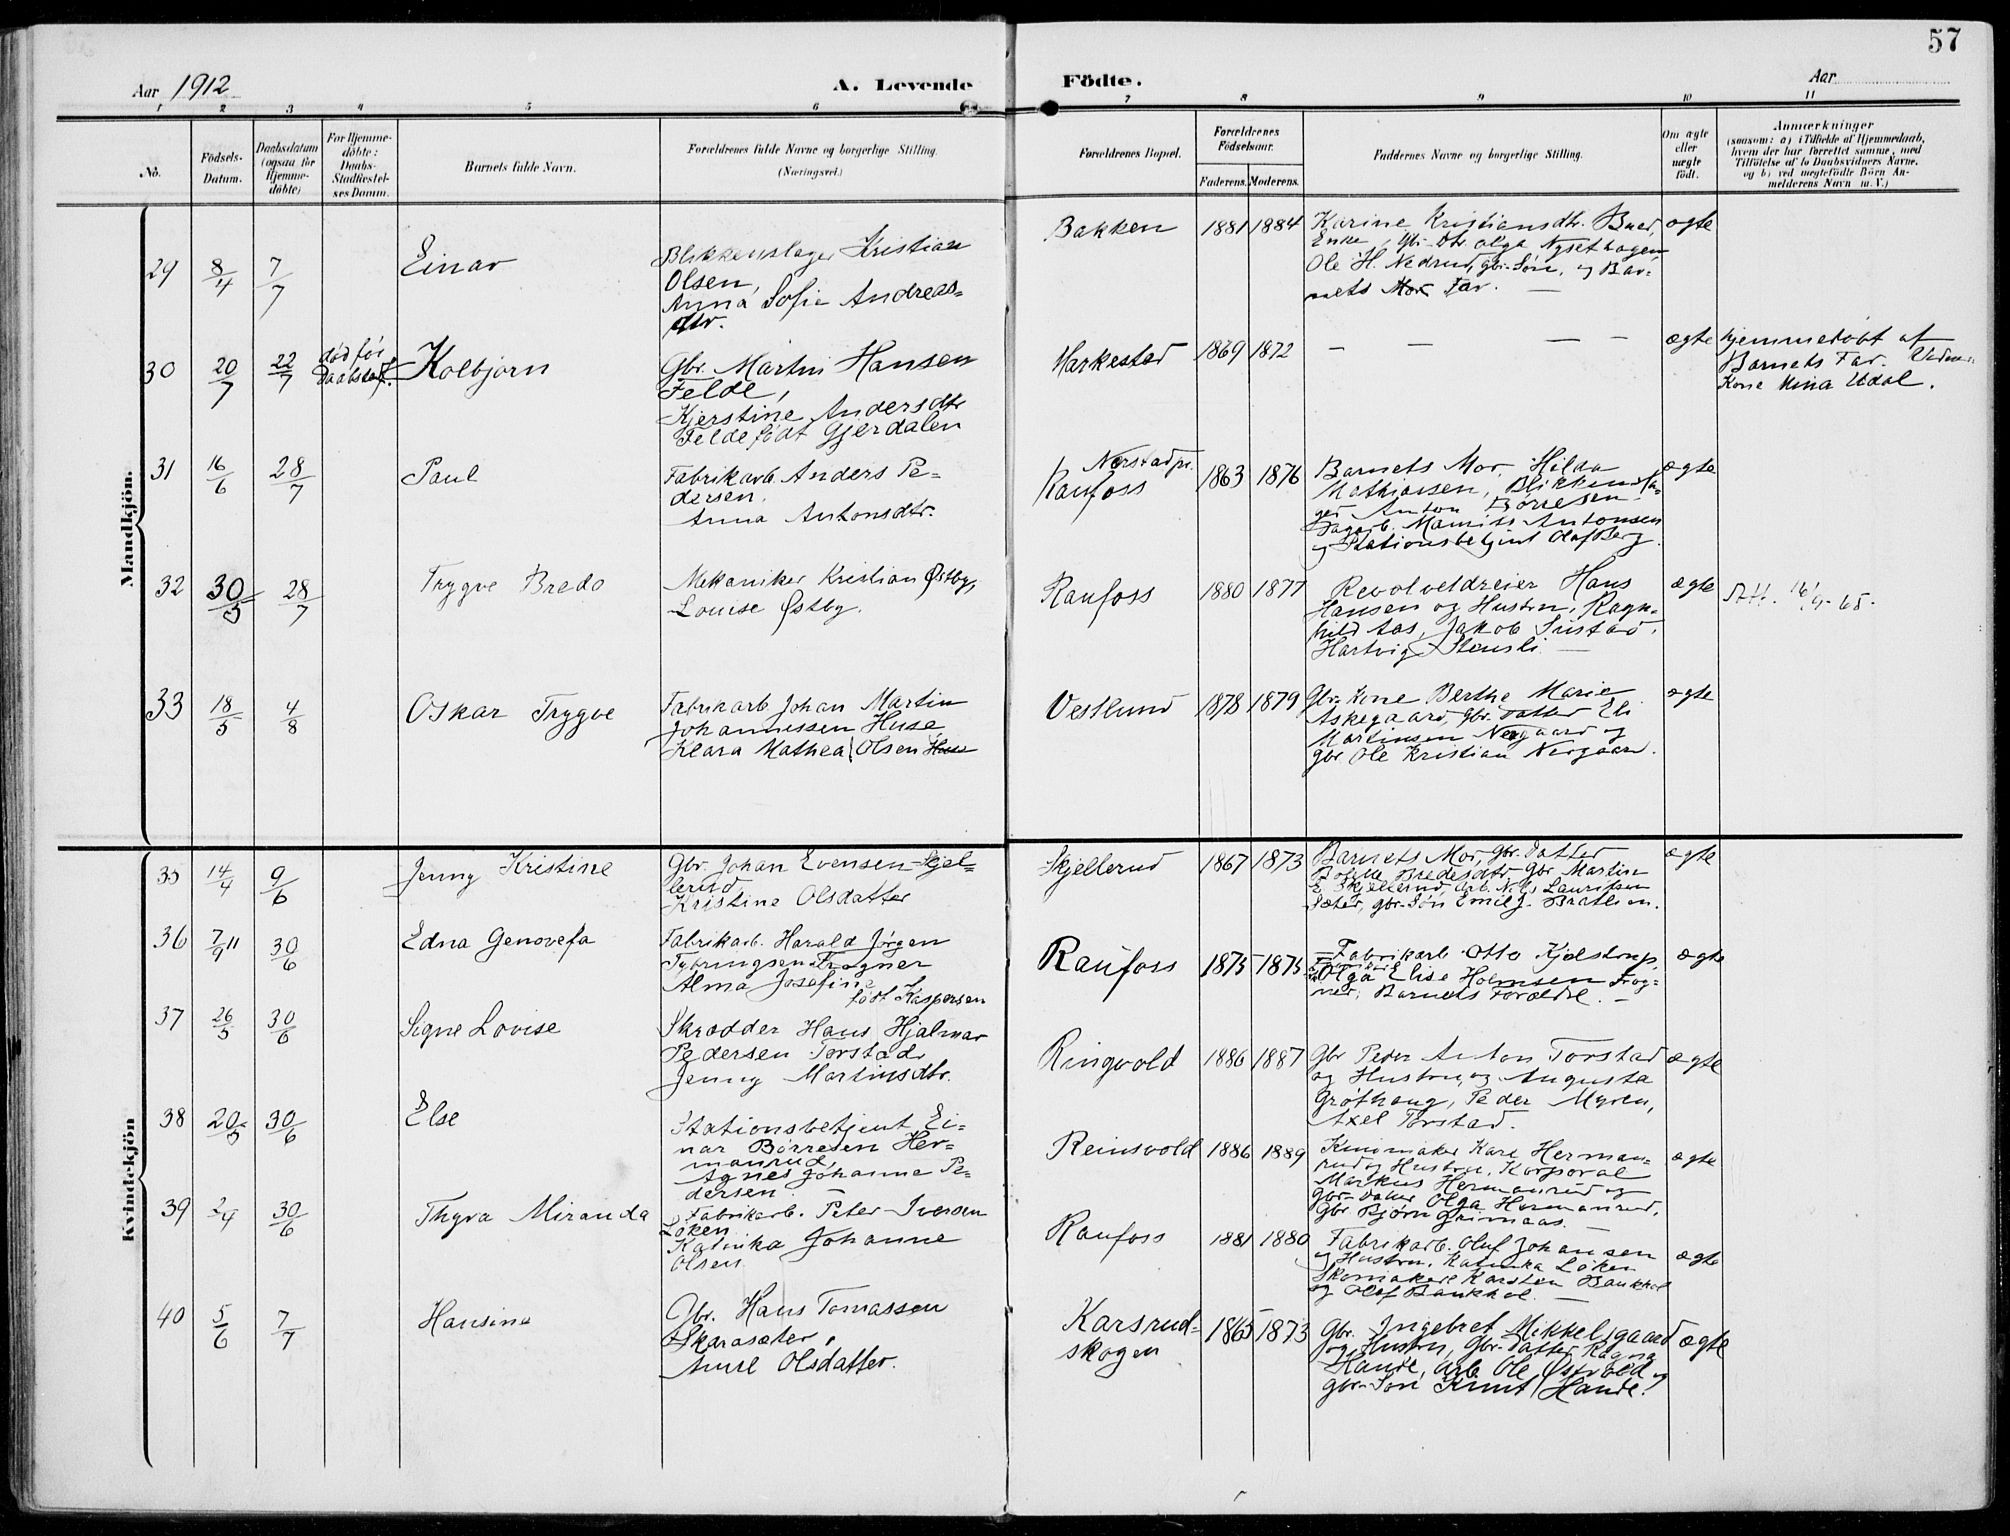 57
Aar 1912
A. Levende
Födte.
Aar
1 2 3 4 5 6 7 8 9 10 11
No.
Födsels-
Datum.
Daabsdatum
(ogsaa for
Hjemme-
döbte)
For Hjemme-
döbte:
Daabs-
Stadfæstel-
ses Datum.
Barnets fulde Navn.
Forældrenes fulde Navne og borgerlige Stilling.
(Næringsvei.)
Forældrenes Bopæl.
Forældrenes
Födselsaar.
Faderens. Moderens.
Faddernes Navne og borgerlige Stilling.
Om ægte
eller
uægte
födt.
Anmærkninger
(saasom: a) i Tilfælde af Hjemmedaab,
hvem der har forrettet samme, med
Tilföielse af to Daabsvidners Navne.
og b) ved uægtefödte Börn An-
melderens Navn m. V.)
Mandkjön.
29 8/4 7/7 Einar
Blikkenslager Kristian
Olsen,
Anna Sofie Andreas=
dtr.
Bakken 1881 1884
Karine Kristiansdtr.
Enke, Gbr. Dtr. Olga Nysethagen
Ole H. Nedrud, gbr. Søn, og Bar-
nets Mor Far. —
ægte
30 20/7 22/7 død før
Daabstadf. Kolbjørn
Gbr. Martin Hansen
Felde,
Kjerstine Andersdtr
Felde født Gjerdalen
Markestad 1869 1872 — — — — ægte
hjemmedøbt af
Barnets Far.
Kone Mina Udal.
31 16/6 28/7 Paul
Fabrikarb. Anders Pe-
dersen.
Anna Antonsdtr.
Raufoss 1863 1876
Barnets Mor, Hilda
Mathiassen, Blikkensla-
ger Anton Børresen
Antonsen
og Stationsbetjent Olaf Berg.
ægte
32 30/5 28/7 Trygve Bredo
Mekaniker Kristian Østby,
Louise Østby.
Raufoss 1880 1877
Revolveldreier Hans
Hansen og Hustru, Ragn-
hild Aas, Jakob
Hartvig Stensli —
ægte Att. 16/9-65.
33 18/5 4/8 Oskar Trygve
Fabrikarb. Johan Martin
Johannessen Huse
Klara Mathea Olsen Huse
Vestlund 1878 1879
Gbr. Kone Berthe Marie
Askegaard, Gbr. Datter Eli
Martinsen Nergaard og
gbr. Ole Kristian Nergaard.
ægte
Kvindekjön
35 14/4 9/6 Jenny Kristine
Gbr. Johan Evensen Skjel-
lerud
Kristine Olsdatter
Skjellerud 1867 1873
Barnets Mor, Gbr. Datter
Bredesdtr Gbr Martin
E. Skjellerud, arb. N. Lauritsen
Sæter, gbr. Søn Emil J. Bratlien.
ægte
36 7/9 11 30/6 Edna Genovefa
Fabrikarb. Harald Jørgen
Frogner
Alma Josefine
født Kaspersen
Raufoss 1875 1875
Fabrikarb Otto Kjølstrup,
Olga Elise Holmsen Frog-
ner, Barnets Forældre. —
ægte
37 26/5 30/6 Signe Lovise
Skrædder Hans Hjalmar
Pedersen Torstad
Jenny Martinsdtr.
Ringvold 1886 1887
Gbr Peder Anton Torstad
og Hustru, og Augusta
Grøthaug, Peder Myren,
Axel Torstad.
ægte
38 20/5 30/6 Else
Stationsbetjent Ei-
nar Børresen Her-
manrud,
Agnes Johanne Pe-
dersen.
Reinsvold 1886 1889
Karl Herman-
rud og Hustru, Korporal
Markus Hermanrud og
Gbr. Datter Olga Hermanrud.
Gbr Bjørn Grimaas. —
ægte
39 2/4 30/6 Thyra Miranda
Fabrikarb. Peter Iversen
Løken
Katinka Johanne
Olsen
Raufoss 1881 1880
Fabrikarb. Oluf Johansen
og Hustru, Katinka Løken
Skomaker Karsten Baukhol
og Olaf Baukhol. —
ægte
40 5/6 7/7 Hansine
Gbr. Hans Tomassen
Skarasæter,
Anne Olsdatter.
Karsrud-
skogen
1865 1873
Gbr. Ingebret Mikkelsgaard
og Hustru, Gbr. Datter Ragna
Hande, Arb. Ole Østvold og
gbr. Søn Knut Hande.
ægte